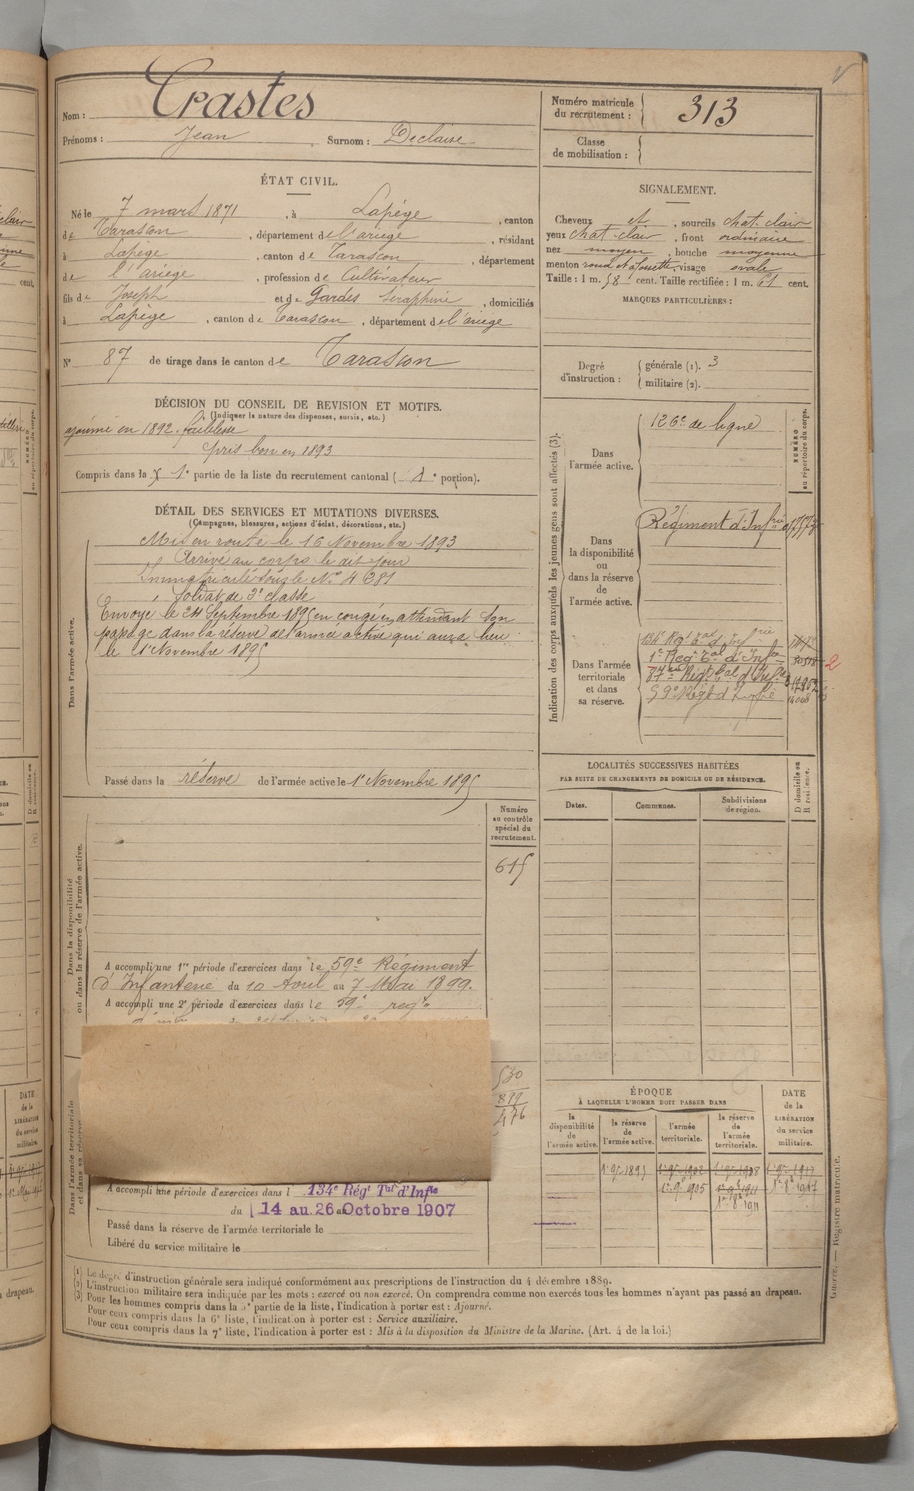 Nom : Crastes
Prénoms : Jean Surnom : Declaise
ÉTAT CIVIL.
Né le 7 mars 1871, à Lapège, canton
de Tarascon, département de l'ariège, résidant
à Lapège, canton de Tarascon, département
de l'ariege, profession de Cultivateur
fils de Joseph et de Gardes Séraphine, domiciliés
à Lapège, canton de Tarascon, département de l'ariege
N° 87 de tirage dans le canton de Tarascon
DÉCISION DU CONSEIL DE REVISION ET MOTIFS.
(Indiquer la nature des dispenses, sursis, etc.)
ajourné en 1892. faiblesse
pris bon en 1893
Compris dans la 1e partie de la liste du recrutement cantonal ( portion).
DÉTAIL DES SERVICES ET MUTATIONS DIVERSES.
(Campagnes, blessures, actions d'éclat, décorations, etc.)
Dans l'armée active.
Mis en route le 16 Novembre 1893
Arrivé au corps le dit jour
Immatriculé sous le N° 4281
Soldat de 2e classe
Envoyé le 24 Septembre 1895 en congé en attendant son
passage dans la réserve de l'armée active qui aura lieu
le 1er Novembre 1895
Passé dans la réserve de l'armée active le 1er Novembre 1895
Dans la disponibilité
ou dans la réserve de l'armée active.
Numéro
au contrôle
spécial du
recrutement.
615
A accompli une 1re période d'exercices dans le 59e Régiment
d'Infanterie du 10 Avril au 7 Mai 1899.
A accompli une 2e période d'exercices dans le 59e régt
530
476
Dans l'armée territoriale
et dans sa réserve
A accompli une période d'exercices dans l 134e Régt Tal d'Infie
du 14 au 26 Octobre 1907
Passé dans la réserve de l'armée territoriale le
Libéré du service militaire le
Numéro matricule
du recrutement : 313
Classe
de mobilisation :
SIGNALEMENT.
Cheveux et, sourcils chat. clair
yeux chat. clair, front ordinaire
nez moyen, bouche moyenne
menton rond et fossette, visage ovale
Taille : 1 m. 58 cent. Taille rectifiée : 1 m. 61 cent.
MARQUES PARTICULIÈRES :
Degré
d'instruction :
générale (1). 3
militaire (2).
Indication des corps auxquels les jeunes gens sont affectés (3).
NUMÉRO
au répertoire du corps.
Dans
l'armée active.
126e de ligne
Dans
la disponibilité
ou
dans la réserve
de
l'armée active.
Régiment d'Infrie
Dans l'armée
territoriale
et dans
sa réserve.
134e Régt Tal d'Infrie
1er Régt Tal d'Infie
87e Régt Tal d'Infie
59e Régt d'Infie
2
LOCALITÉS SUCCESSIVES HABITÉES
PAR SUITE DE CHANGEMENTS DE DOMICILE OU DE RÉSIDENCE.
Dates.
Communes.
Subdivisions
de région.
D domicile ou
R résidence.
ÉPOQUE
À LAQUELLE L'HOMME DOIT PASSER DANS
la
disponibilité
de
l'armée active.
la réserve
de
l'armée active.
l'armée
territoriale.
la réserve
de
l'armée
territoriale.
DATE
de la
LIBÉRATION
du service
militaire.
1er 9bre 1895
(1) Le degré d'instruction générale sera indiqué conformément aux prescriptions de l'instruction du 4 décembre 1889.
(2) L'instruction militaire sera indiquée par les mots : exercé ou non exercé. On comprendra comme non exercés tous les hommes n'ayant pas passé au drapeau.
(3) Pour les hommes compris dans la 5e partie de la liste, l'indication à porter est : Ajourné.
Pour ceux compris dans la 6e liste, l'indication à porter est : Service auxiliaire.
Pour ceux compris dans la 7e liste, l'indication à porter est : Mis à la disposition du Ministre de la Marine. (Art. 4 de la loi.)
Guerre. — Registre matricule.